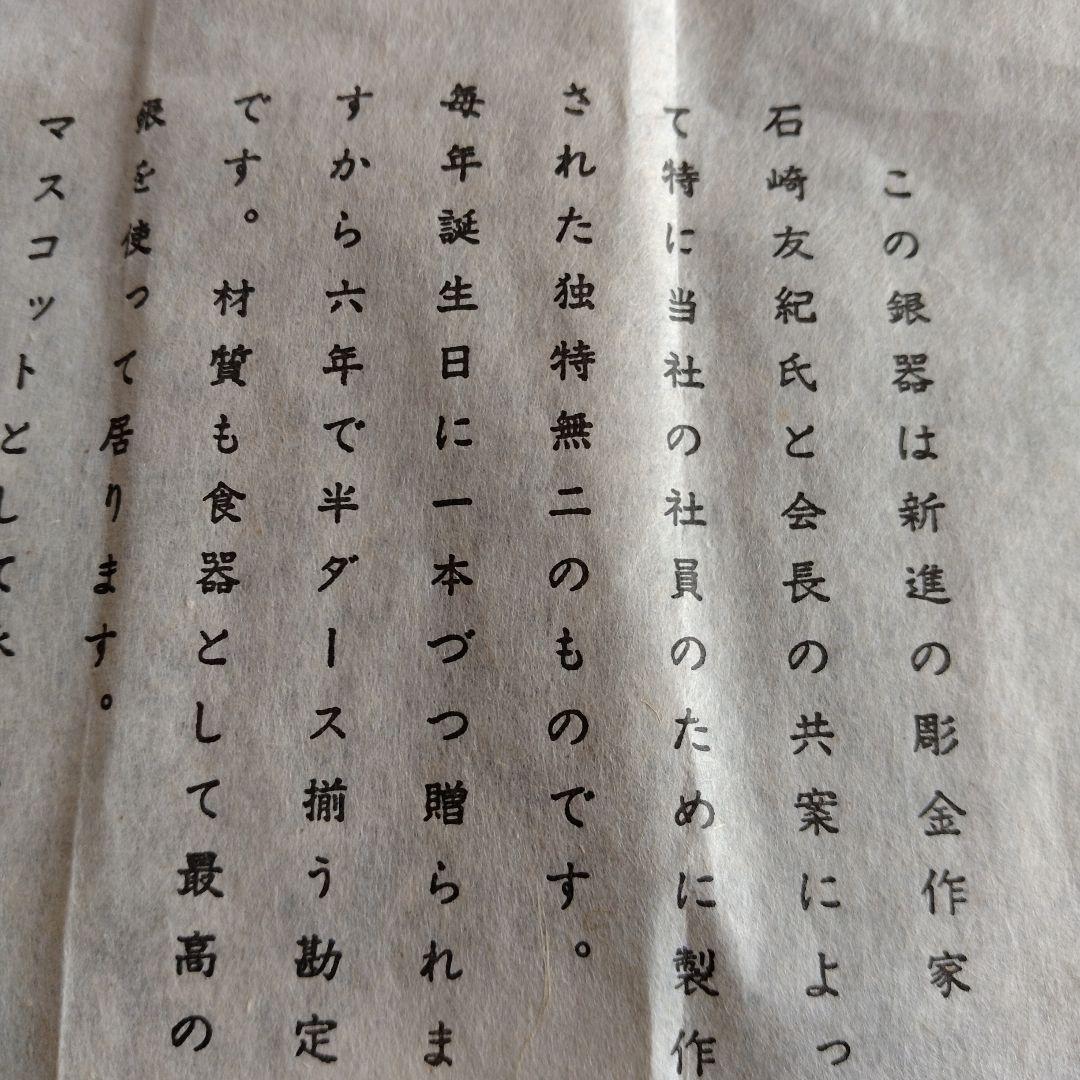 この銀器は新進の彫金作家
石崎友紀氏と会長の共案によっ
て特に当社の社員のために製作
された独特無二のものです。
毎年誕生日に一本づつ贈られま
すから六年で半ダース揃う勘定
です。材質も食器として最高の
銀を使って居ります。
マスコットとして